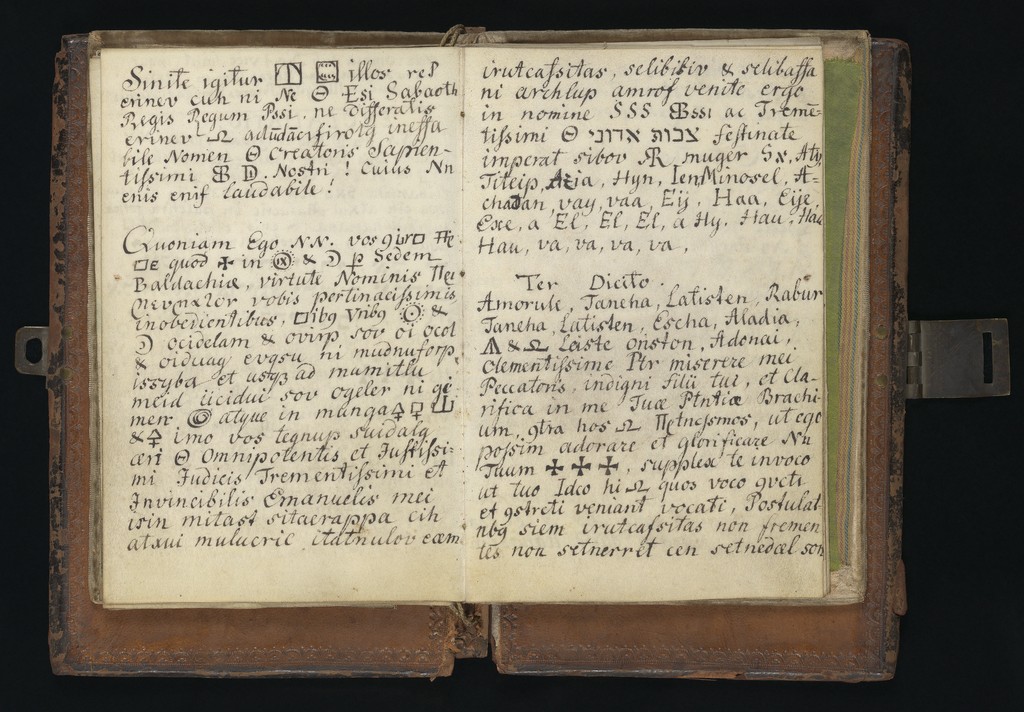 Sinite igitur illos res
erinev cuh ni Nē Θ Esi Sabaoth
Regis Regum Pssi. ne differatis
erinev ☊ adūdācifirotq ineffa
bile Nomen Θ Creatoris Sapien-
tissimi D. Nostri! Cuius Nn
enis enif laudabile!
Quoniam Ego NN. vos
quod ✠ in & Ↄ p Sedem
Baldachiæ, virtute Nominis
vobis pertinacissimis
inobedientibus, ☉ &
Ↄ ocidelam & ovirp sov oi ocol
& oiduag evqsu ni mudnuforp
issyba et usq3 ad mumitlu
meid iicidui sov ogeler ni qi
men. atque in munga
& imo vos tequup suidalg
æri Θ Omnipotentis et Justissi-
mi Judicis Trementissimi et
Invincibilis Emanuelis mei
isin mitast sitaerappa cih
atxui mulucric itatnulov eæm
irutcafsitas, selibibiv & selibaffa
ni archlup amrof venite ergo
in nomine SSS ac Treme-
tissimi Θ צבות אדוני festinate
imperat sibov muger Sx, Aty
Titeip, Azia, Hyn, Ien Minosel, A-
chadan, vay, vaa, Eij, Haa, Eije,
Exe, a El, El, El, a Hy. Hau. Hau
Hau, va, va, va, va.
Ter Dicito.
Amorule, Taneha, Latisten, Rabur
Taneha, Latisten, Escha, Aladia,
& ☊ Leiste Onston, Adonai,
Clementissime Ptr miserere mei
Peccatoris, indigni filii tui, et Cla-
rifica in me Tuæ Ptntiæ Brachi-
um, 9tra hos ☊ ut ego
possim adorare et glorificare Nn
Tuum ✠ ✠ ✠, supplex te invoco
ut tuo Ideo hi ☊ quos voco 9vcti
et 9stricti veniant vocati, Postulat-
nbg siem irutcafsitas non fremen
tes non setnerret cen setnedæl son